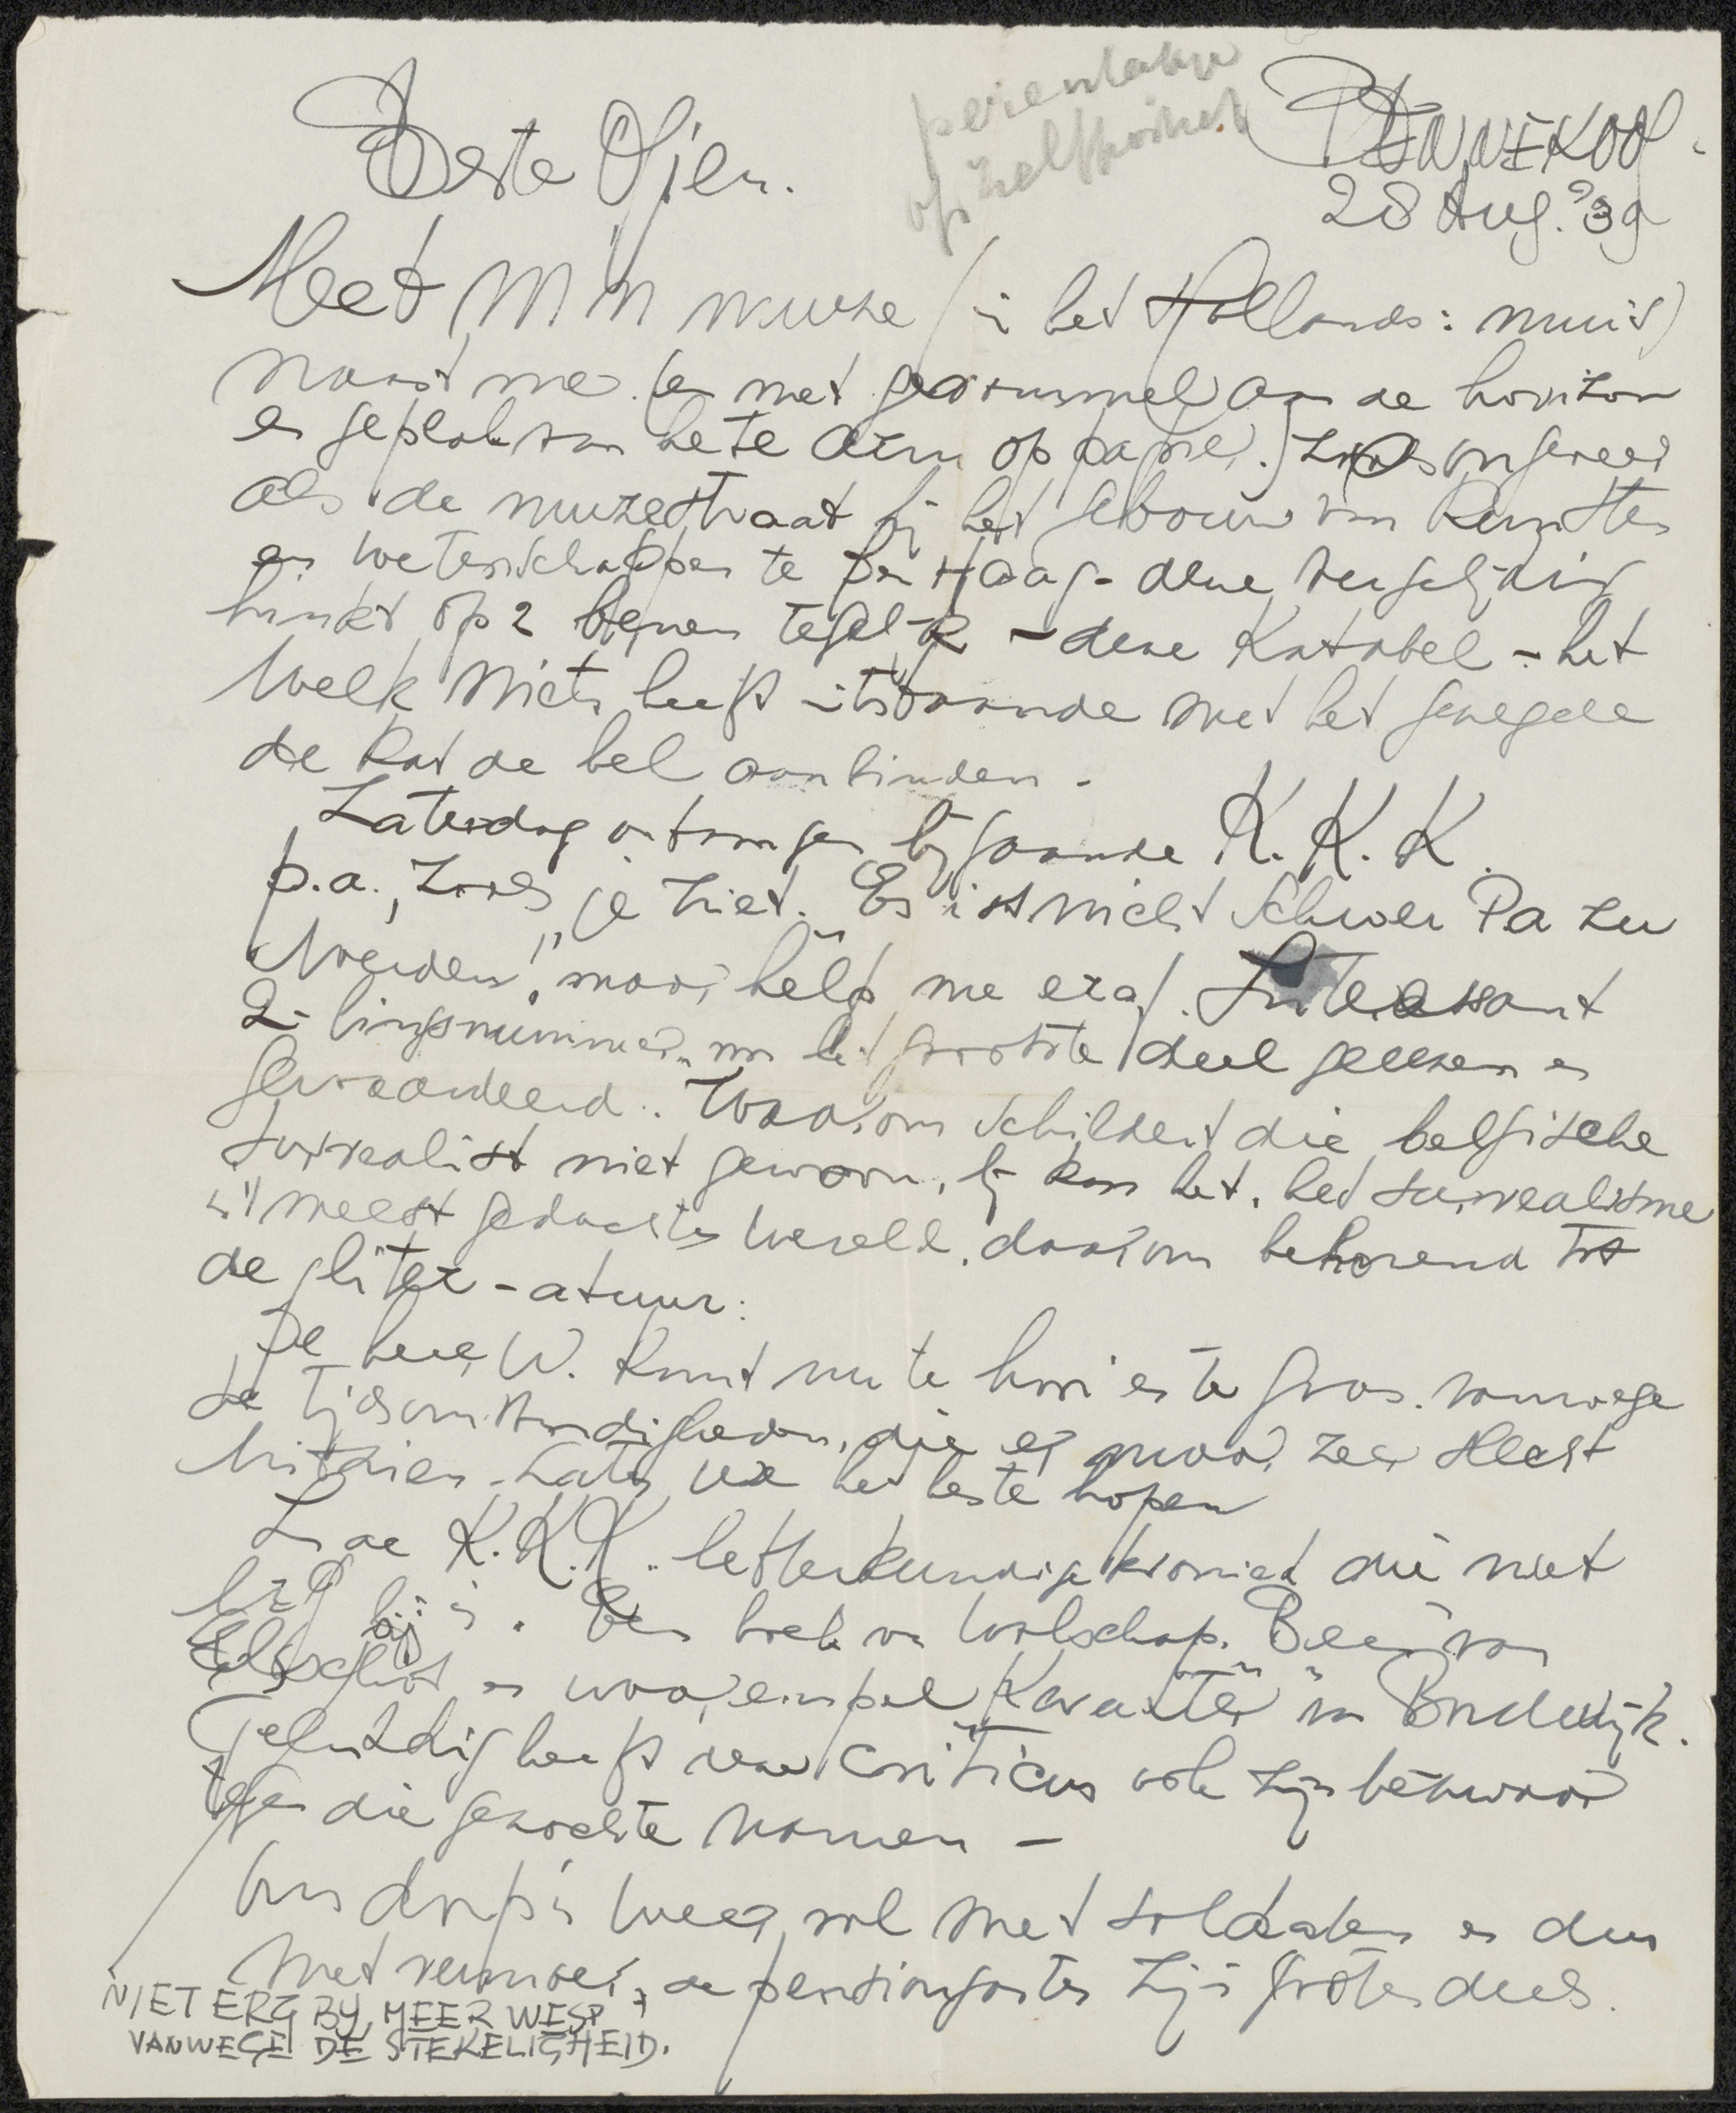 Beste Ojen.
op zelfportret
PENNEKOOP.
28 Aug. '39
Met m'n muze (in het Hollands: muis)
naast me (en met gerommel aan de horizon
en geplak van hete arm op papier.) zoiets ongeveer
als de muzestraat bij het gebouw van Kunsten
en Wetenschappen te Den Haag - deze vergelijking
hinkt op 2 benen tegelijk - deze Katabel - het
welk niets heeft uitstaande met het gezegde
de kat de bel aanbinden -
Zaterdag ontvangen bijgaande K.K.K.
p.a., zoals je ziet. "Es ist nicht schwer Pa zu
werden", maar help me eraf. Interessant
2-lingsnummer, voor het grootste deel gelezen en
gewaardeerd. Waarom schildert die belgische
surrealist niet gewoon, hij kan het, het surrealisme
is 'n meest gedachte wereld, daarom behorend tot
de gliter-atuur.
De heer W. komt nu te hooi en te gras vanwege
de tijdsomstandigheden, die er maar zeer slecht
uitzien. Laten we het beste hopen
In de K.K.K. letterkundige kroniek die niet
erg bij is. Een boek van Walschap. Been van
Elsschot en waarempel "Karakter" van Bordewijk.
Gelukkig heeft deze criticus ook zijn bezwaar
tegen die gezochte namen -
Ons dorp is weer vol met soldaten en dus
met rumoer, de pensiongasten zijn grotendeels
NIET ERG BY, MEER WESP
VANWEGE DE STEKELIGHEID.